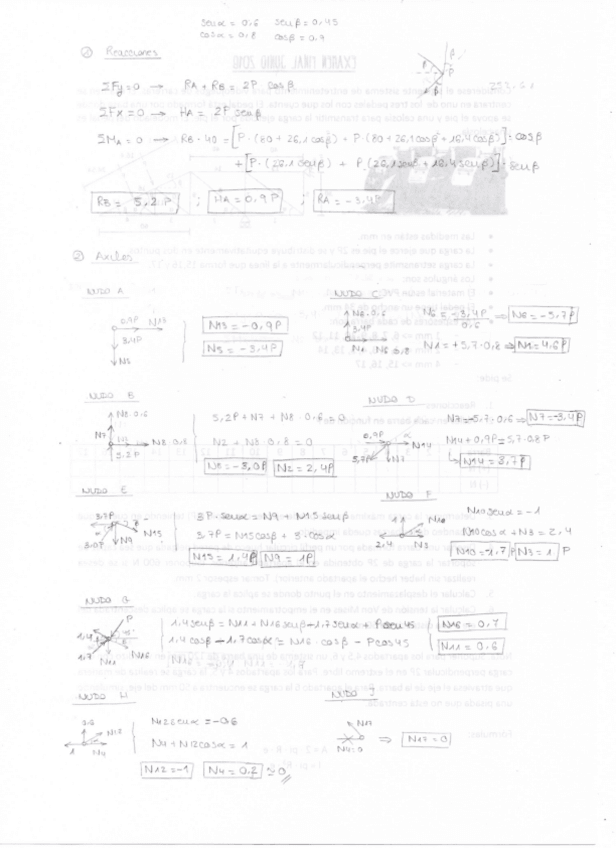 senα = 0,6 senβ = 0,45
cosα = 0,8 cosβ = 0,9
① Reacciones
ΣFy=0 → RA + RB = 2P cosβ
ΣFx=0 → HA = 2P senβ
ΣMA = 0 → RB · 40 = [P·(80+26,1cosβ) + P(80+26,1cosβ+16,4cosβ)]·cosβ
+ [P·(26,1senβ) + P(26,1senβ+16,4senβ)]·senβ
RB = 5,2P ; HA = 0,9P ; RA = -3,4P
② Axiles
NUDO A NUDO C
0,9P N13
3,4P
N5
N13 = -0,9P
N5 = -3,4P
N6·0,6
3,4P
N6 = -3,4P/0,6 ⇒ N6 = -5,7P
N1 = +5,7·0,8 ⇒ N1 = 4,6P
NUDO B NUDO D
N8·0,6
N7
N8·0,8
5,2P
5,2P + N7 + N8·0,6 = 0
N2 + N8·0,8 = 0
N8 = -3,0P N2 = 2,4P
0,9P α N14
5,7P N7
N7 = -5,7·0,6 ⇒ N7 = -3,4P
N14 + 0,9P = 5,7·0,8P
↳ N14 = 3,7P
NUDO E NUDO F
3.7P
3.0P N9 N15
3P·senα = N9 + N15senβ
3.7P = N15cosβ + 3·cosα
N15 = 1,4P N9 = 1P
1 N10
2,4 N3
N10senα = -1
N10cosα + N3 = 2,4
N10 = -1,7P N3 = 1P
NUDO G
P
1,4
1,7 N11 N16
1,4senβ = N11 + N16senβ - 1,7senα + Psen45
1,4cosβ - 1,7cosα = N16·cosβ - Pcos45
N16 = 0,7
N11 = 0,6
NUDO H NUDO J
0,6 N12
1 N4
N12senα = -0,6
N4 + N12cosα = 1
N12 = -1 N4 = 0.2 ≅ 0
N17
N4=0
⇒ N17 = 0